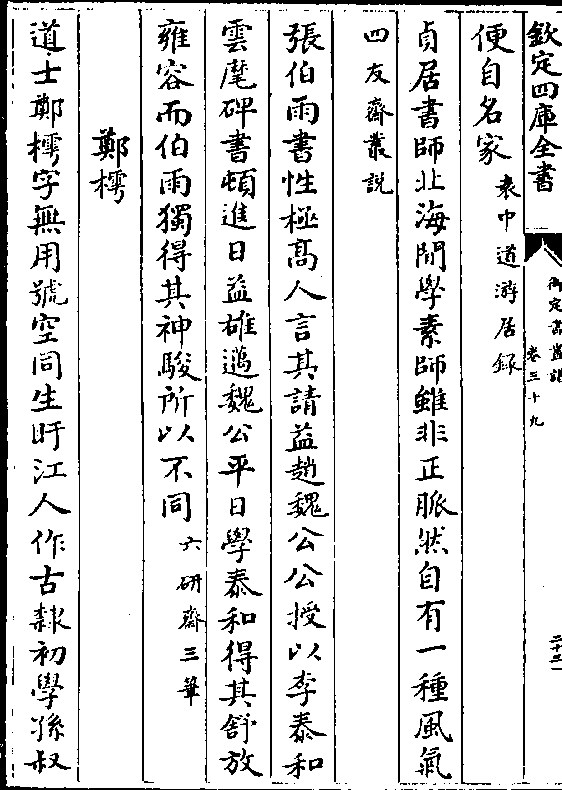 欽定四庫全書
御定書畫譜
卷三十九
二十三
便自名家袁中道游居録
貞居書師北海間學素師雖非正脈然自有一種風氣
四友齋叢説
張伯雨書性極高人言其請益趙魏公公授以李泰和
雲麾碑書頓進日益雄邁魏公平日學泰和得其舒放
雍容而伯雨獨得其神駿所以不同六研齋三筆
鄭樗
道士鄭樗字無用號空同生盱江人作古隸初學孫叔